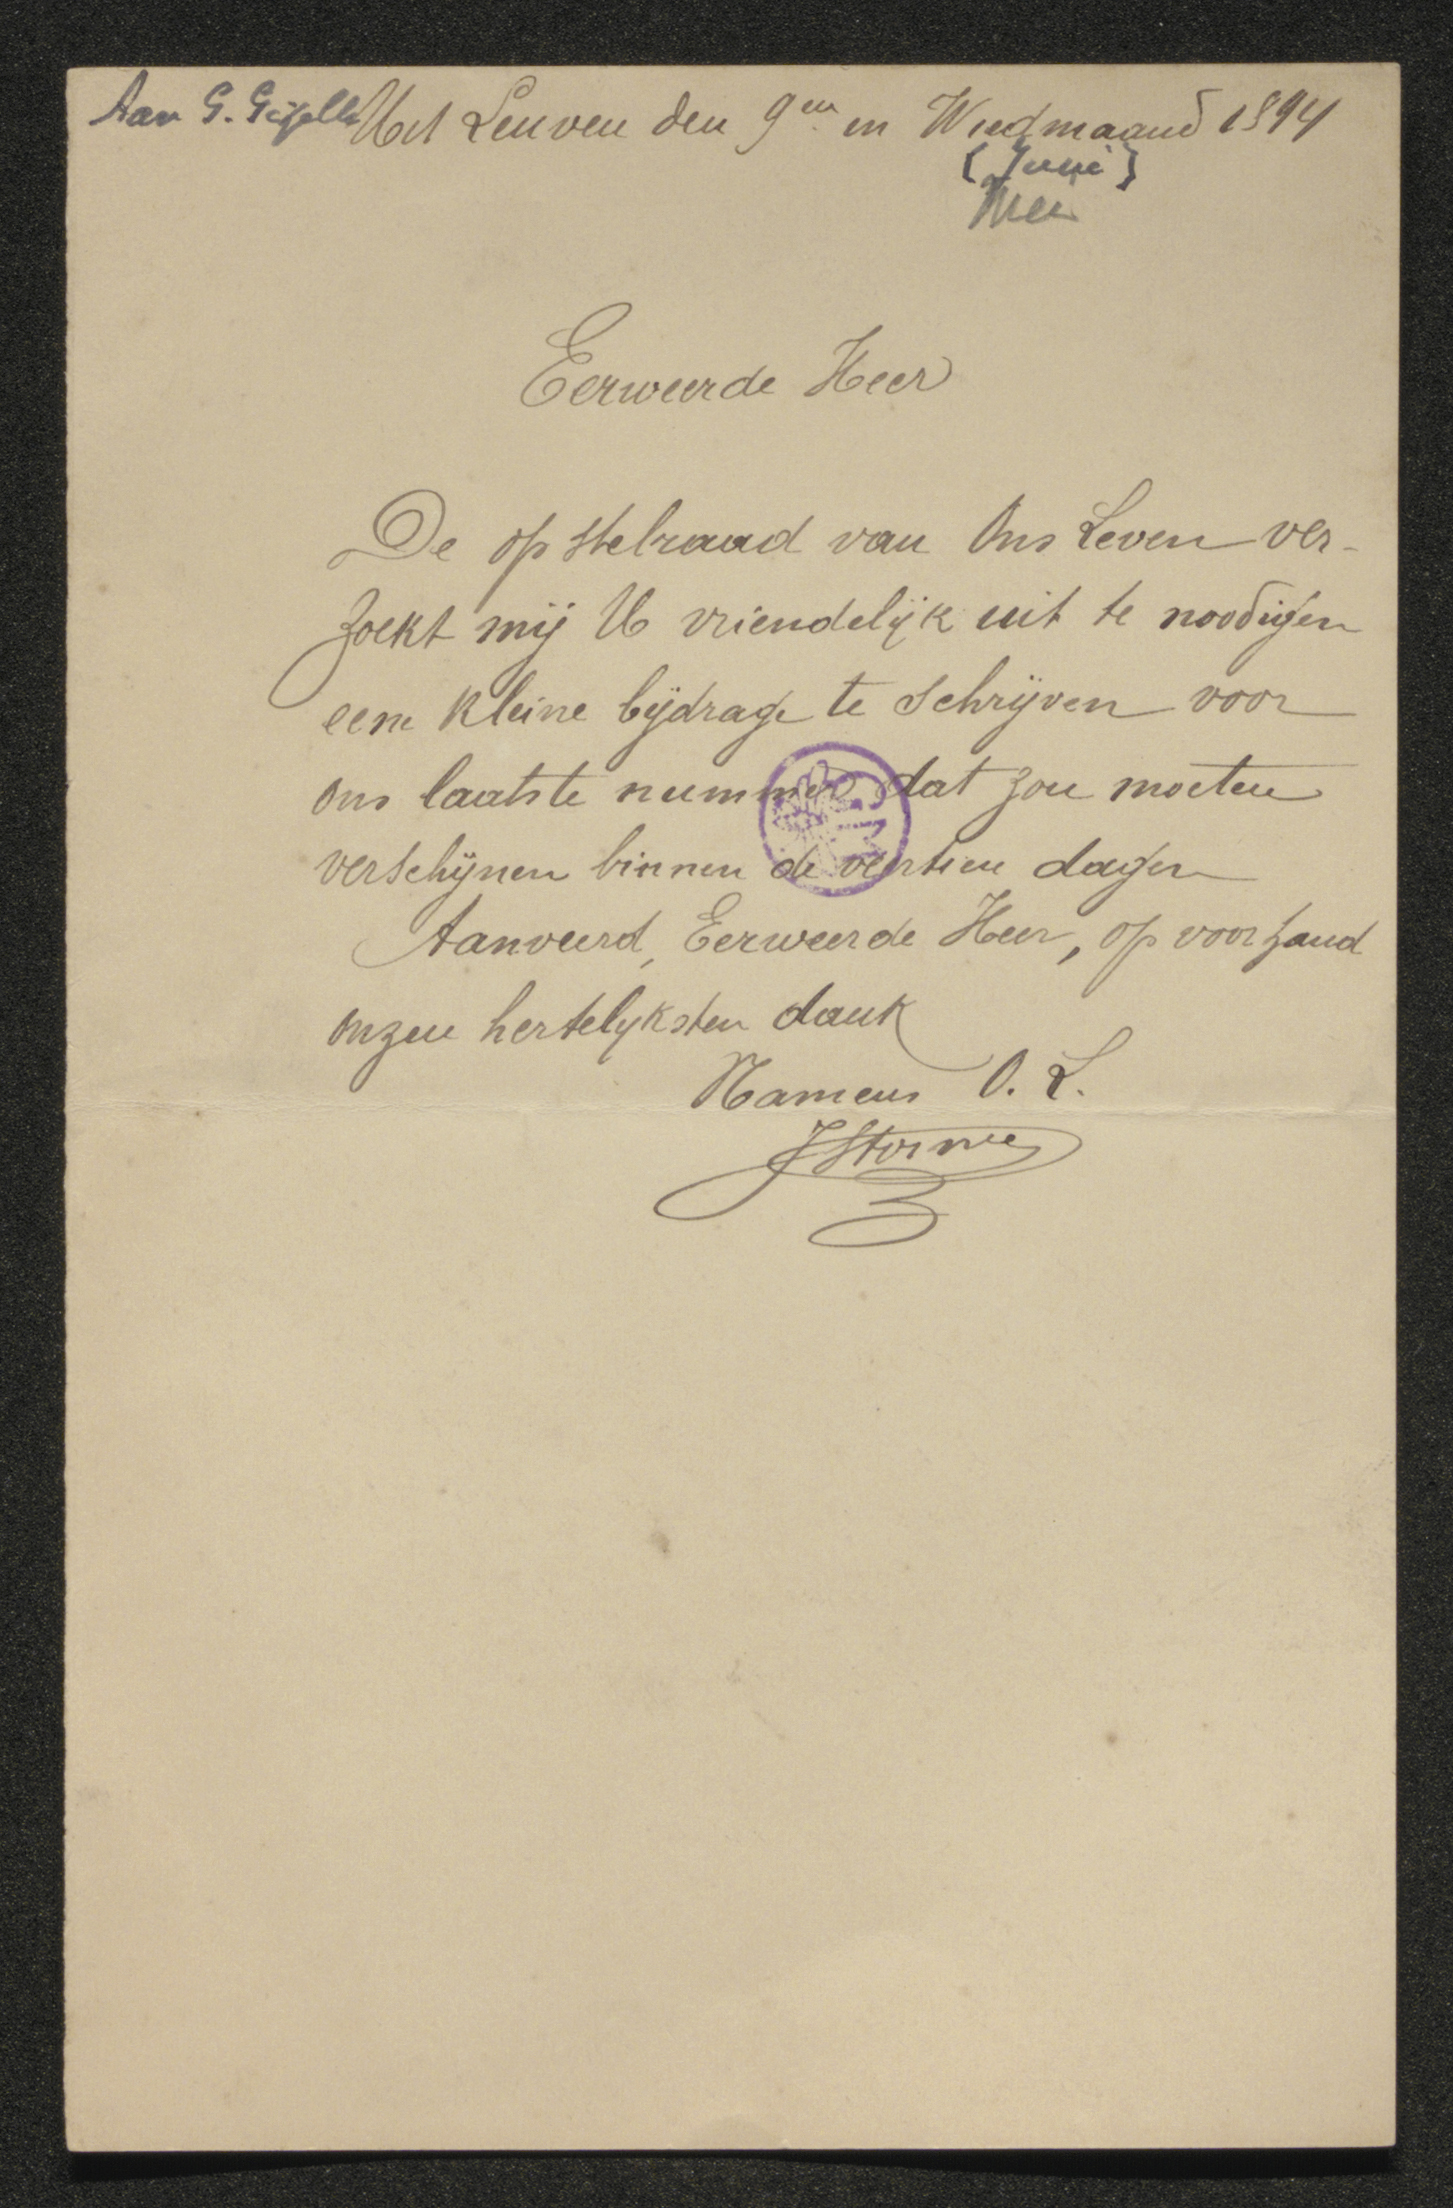 Aan G. Gezelle Uit Leuven den 9en in Wiedmaand 1894
[Juni]
Mei
Eerweerde Heer
De opstelraad van Ons Leven ver-
zoekt mij U vriendelijk uit te noodigen
eene kleine bijdrage te schrijven voor
ons laatste nummer dat zou moeten
verschijnen binnen de veertien dagen
Aanveerd, Eerweerde Heer, op voorhand
onzen hertelijksten dank
Namens O. L.
J Storme